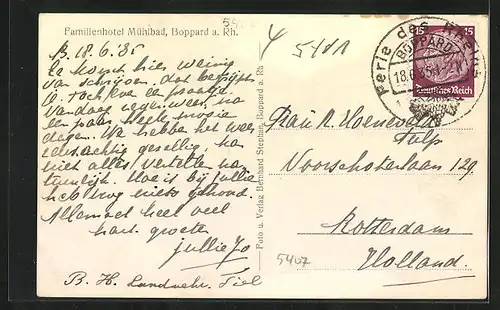 54
Familienhotel Mühlbad, Boppard a. Rh.
B. 18.6.35
Je komt hier weinig
van schrijven, dat begrijp
je toch, eve een praatje.
Vandaag regenweer, na
een paar heele mooie
dagen. We hebbe het weer
gezellig, ga
niet alles vertelle na-
tuurlijk. Hoe is bij jullie
heb nog niets gehoord.
Allemaal heel veel
hart. groete
jullie Jo
B. H. Landwehr. Tiel
Foto u. Verlag Bernhard Stephan, Boppard a. Rh
5401
Perle des Rheins
BOPPARD
18.6.35
15 15
Deutsches Reich
Frau
Voorschoterlaan 129
Rotterdam
Holland.
5407